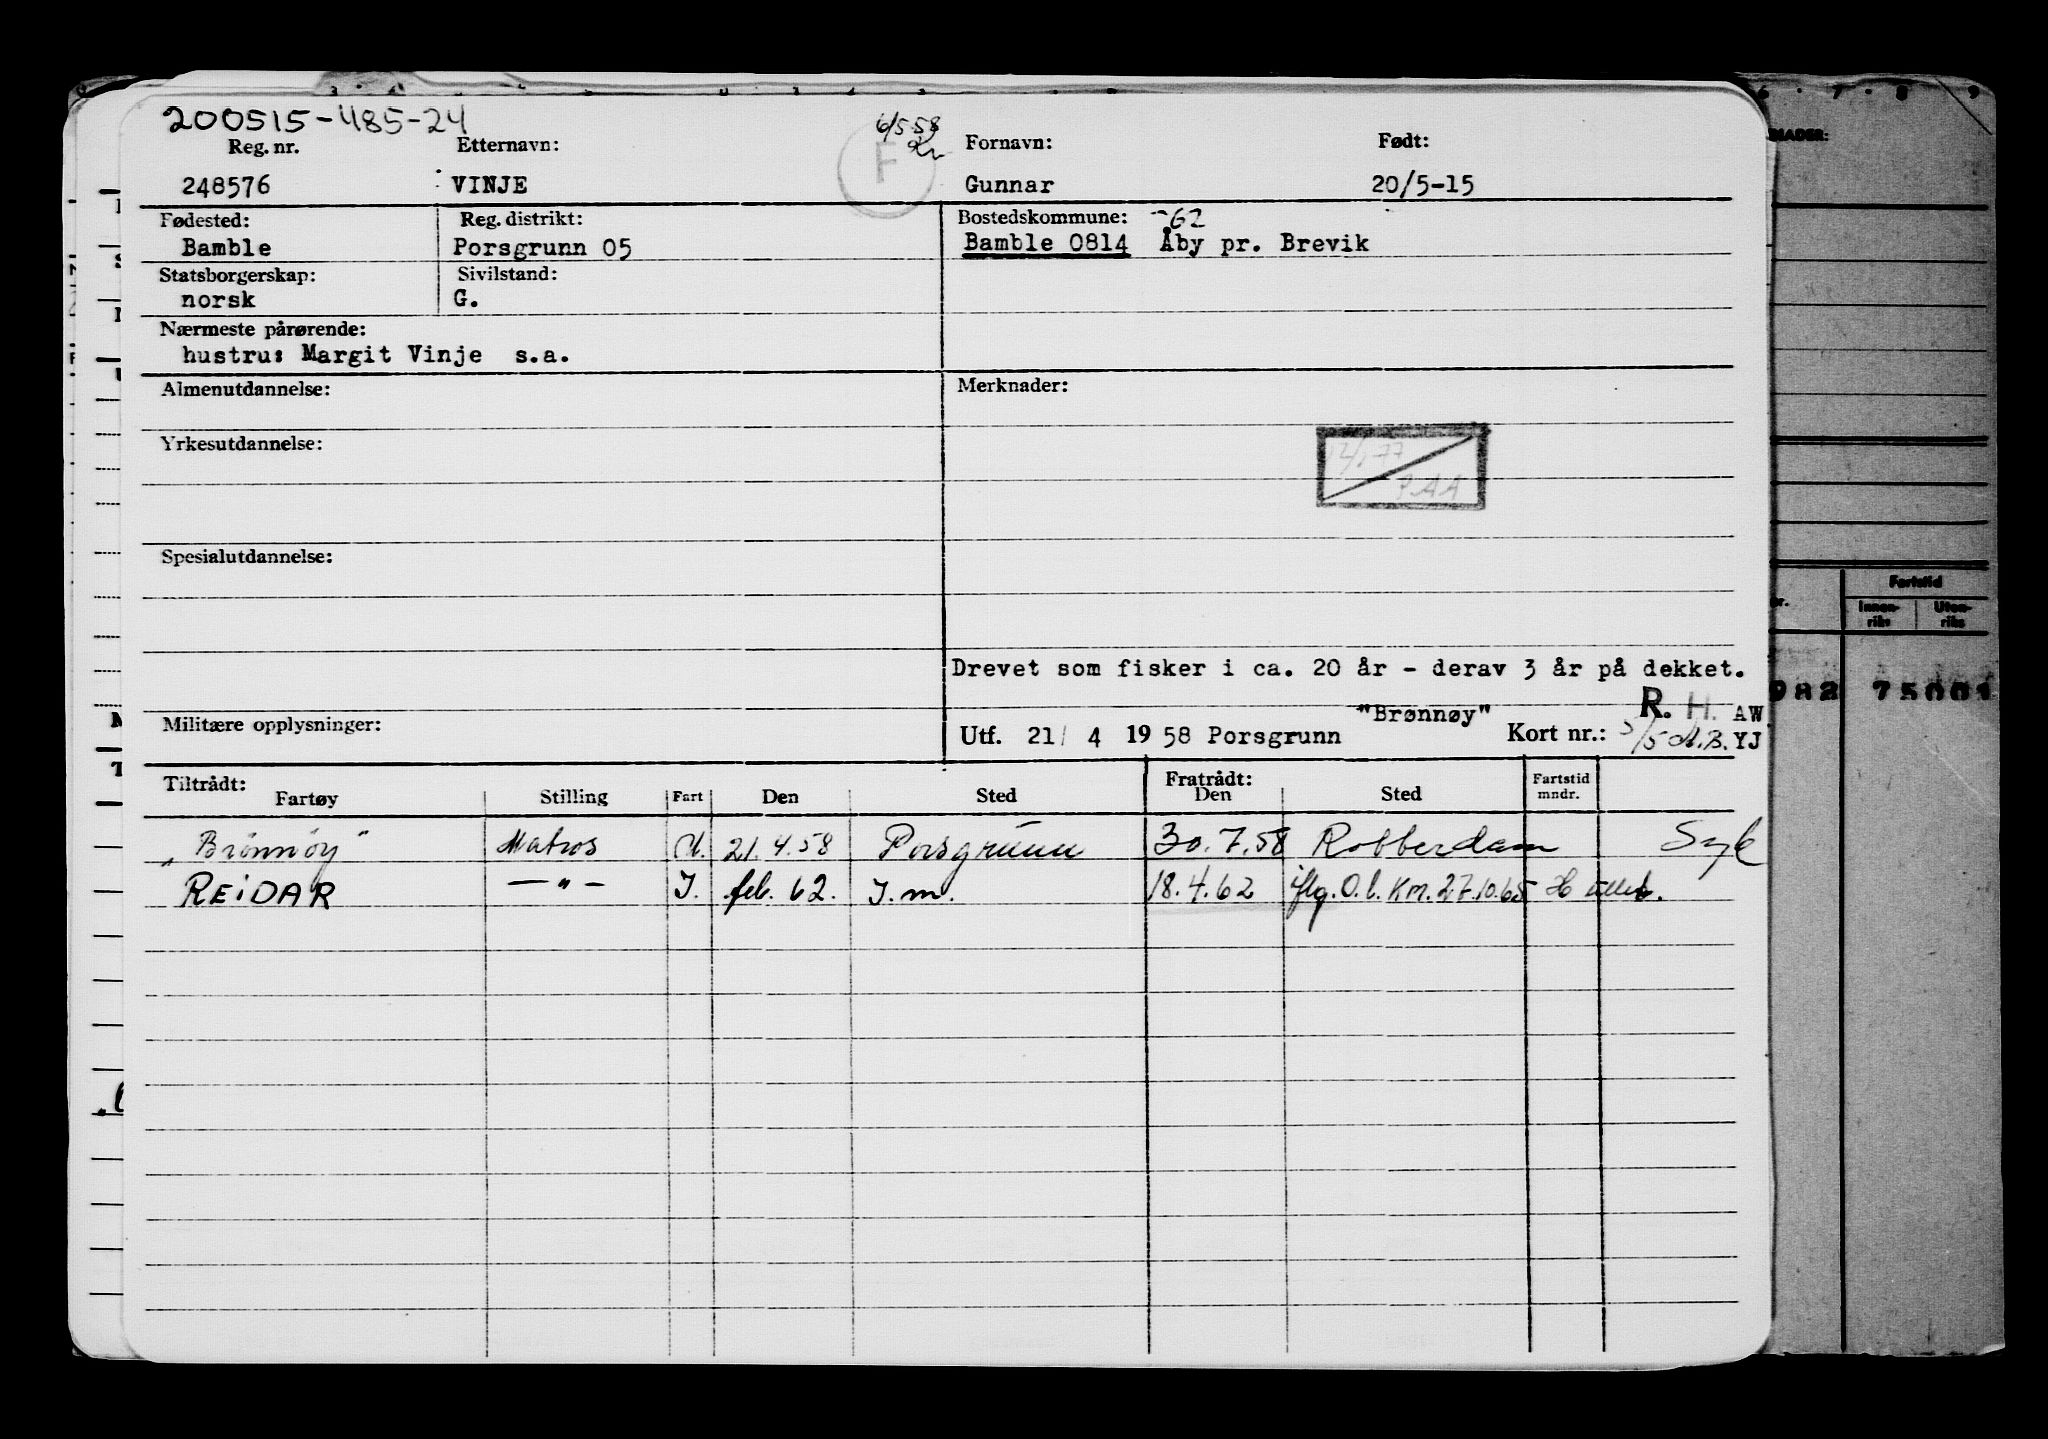 200515-485-24
6/5-58
Reg. nr. Etternavn: F Fornavn: Født:
248576 VINJE Gunnar 20/5-15
Fødested: Reg. distrikt: Bostedskommune: -62
Bamble Porsgrunn 05 Bamble 0814 Åby pr. Brevik
Statsborgerskap: Sivilstand:
norsk G.
Nærmeste pårørende:
hustru: Margit Vinje s.a.
Almenutdannelse: Merknader:
Yrkesutdannelse:
P.A.A
Spesialutdannelse:
Drevet som fisker i ca. 20 år - derav 3 år på dekket.
"Brønnøy" R. H. AW
Militære opplysninger: Utf. 21/ 4 1958 Porsgrunn Kort nr.: 5/5 M.B. YJ
Tiltrådt: Fratrådt: Fartstid
Fartøy Stilling Fart Den Sted Den Sted mndr.
"Brönnöy" Matros U. 21.4.58 Porsgrunn 30.7.58 Robberdam Syk
REIDAR —"— I. feb. 62. I.m. 18.4.62 iflg. O.l. KM. 27.10.65
MADER:
Fartstid
Innen- Uten-
riks riks
982 75001